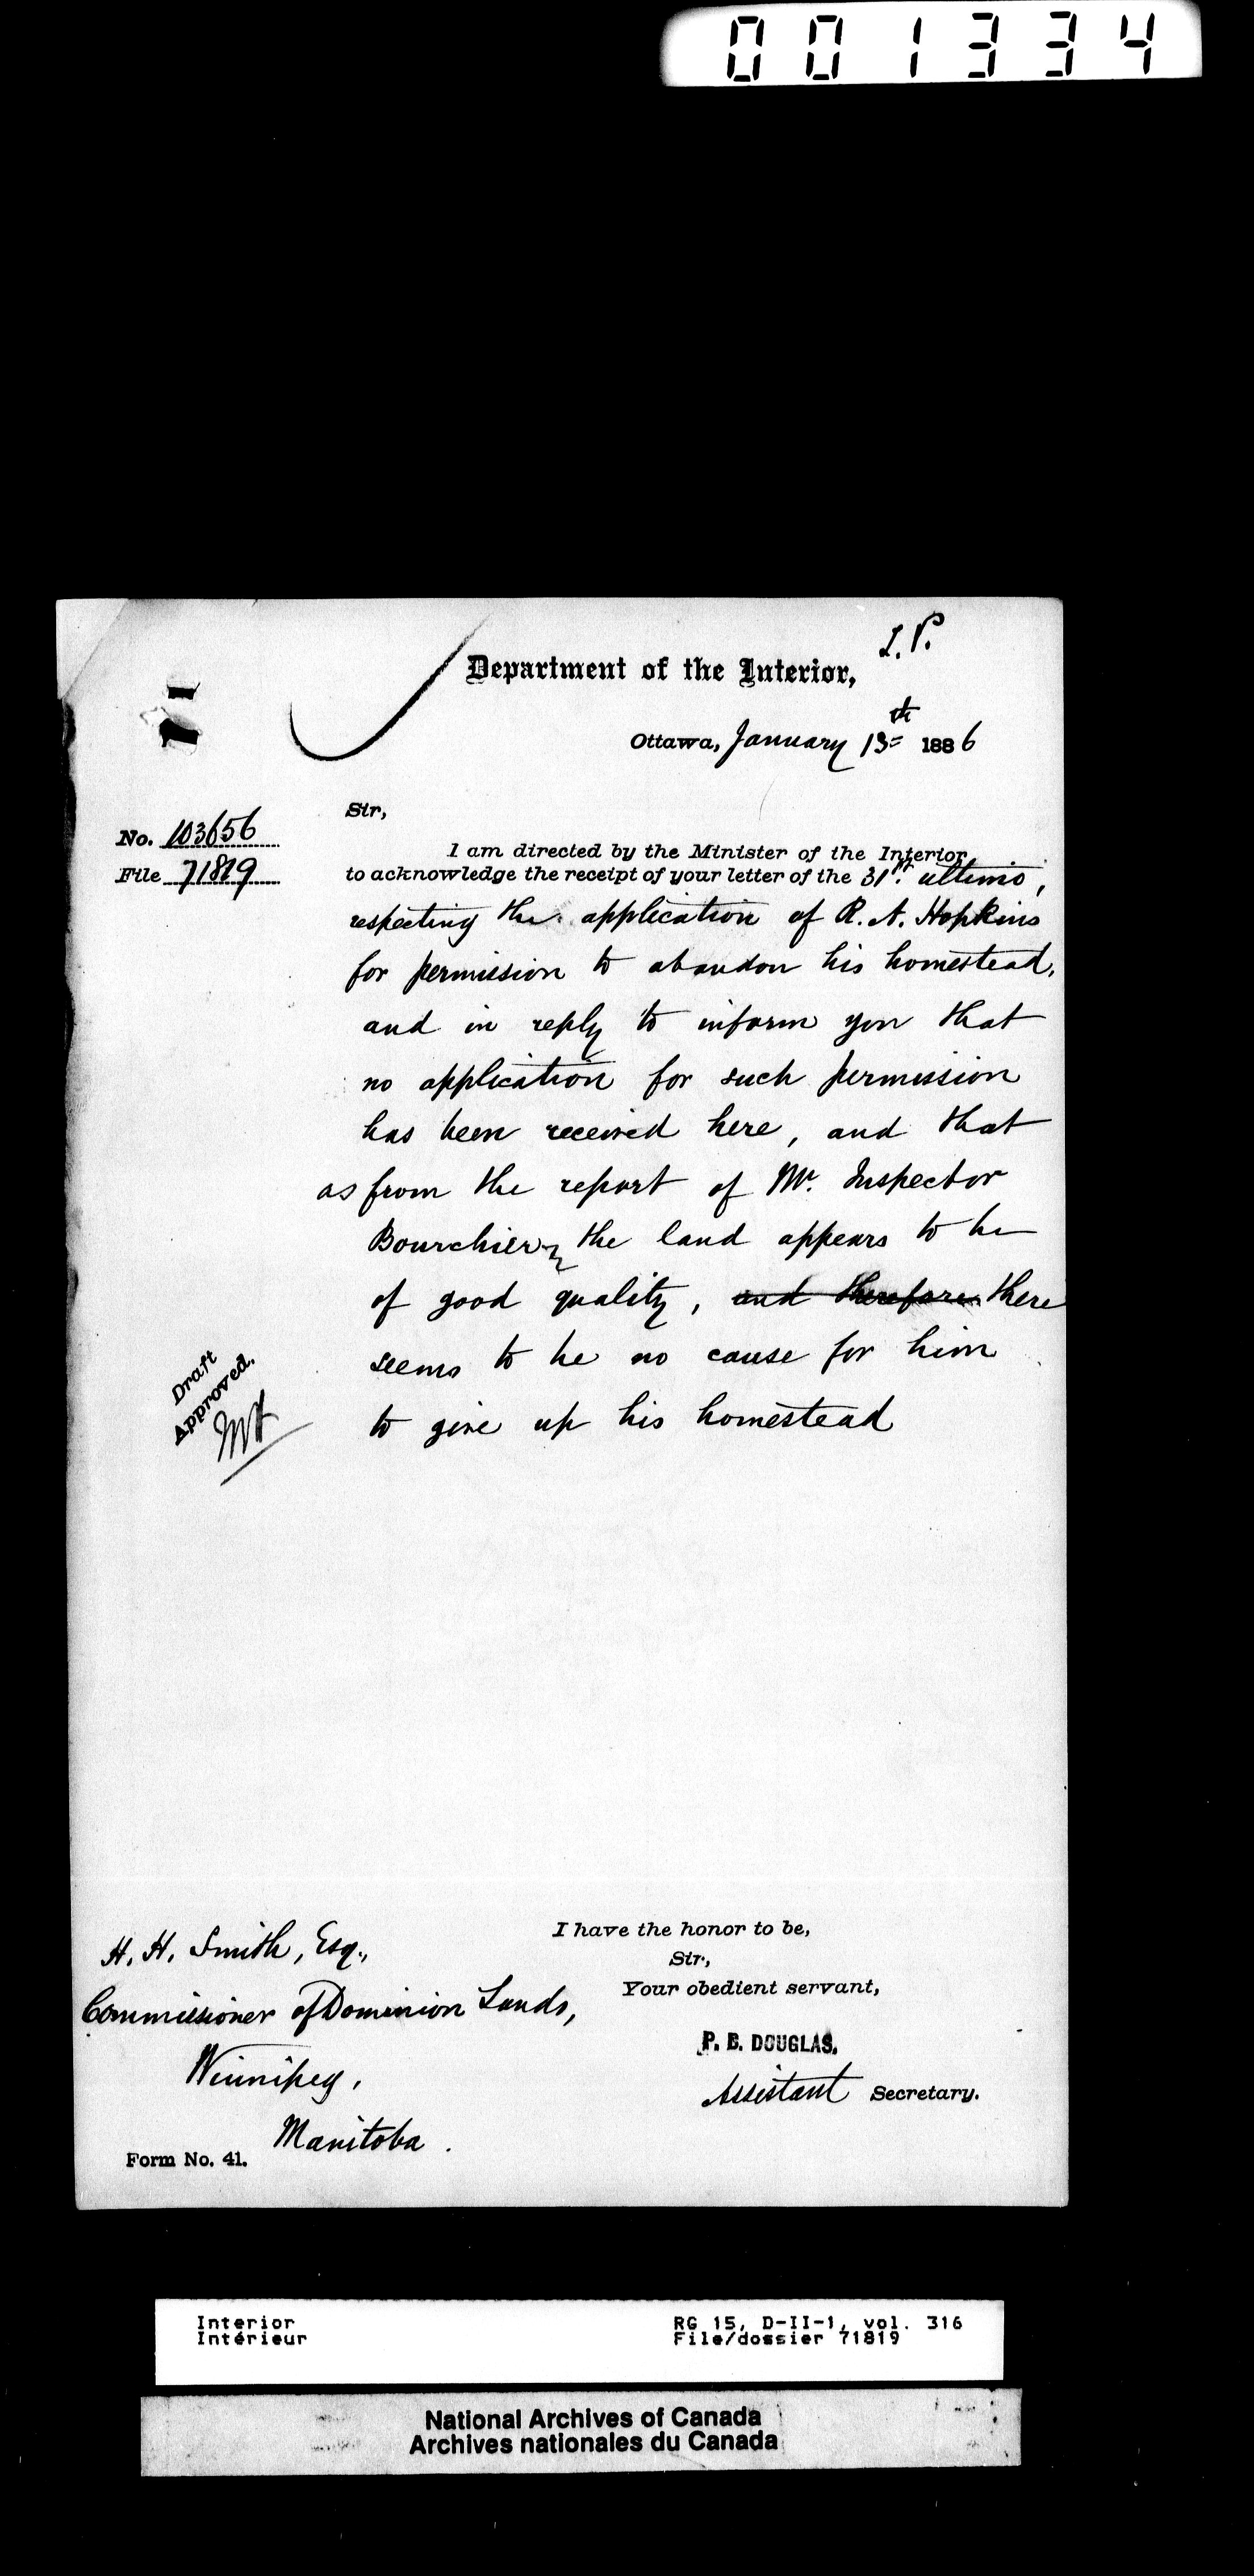 001334
I.P.
Department of the Interior,
Ottawa, January 13th 1886
Sir,
No. 103656
File 71819
I am directed by the Minister of the Interior
to acknowledge the receipt of your letter of the 31st. ultimo,
respecting the application of R. A. Hopkins
for permission to abandon his homestead,
and in reply to inform you that
no application for such permission
has been received here, and that
as from the report of Mr. Inspector
Bourchier, the land appears to be
of good quality, and therefore there
seems to be no cause for him
to give up his homestead
Draft
Approved.
I have the honor to be,
Sir,
Your obedient servant,
P. B. DOUGLAS.
Assistant Secretary.
H. H. Smith, Esq.,
Commissioner of Dominion Lands,
Winnipeg,
Manitoba.
Form No. 41.
Interior
Intérieur
RG 15, D-II-1, vol. 316
File/dossier 71819
National Archives of Canada
Archives nationales du Canada